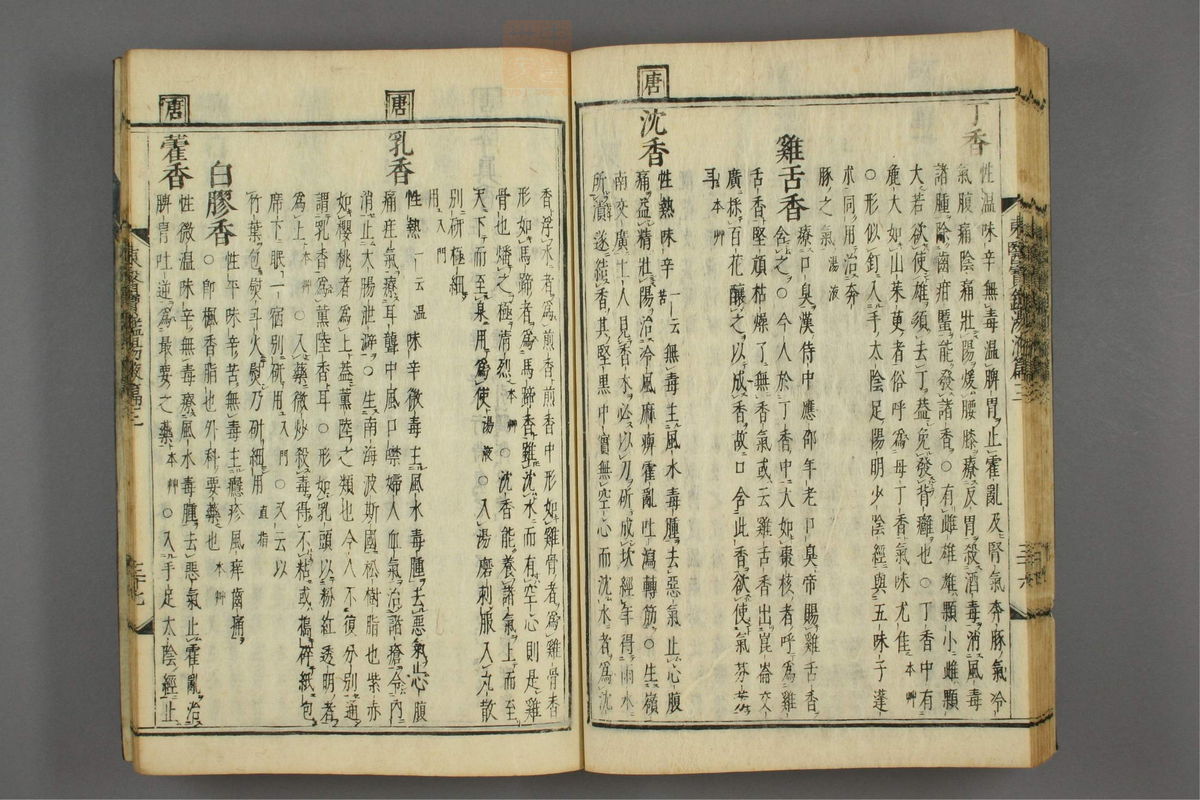 丁香
性温味辛無毒温脾胃止霍亂及腎氣奔豚氣冷
氣腹痛陰痛壯陽煖腰膝療反胃殺酒毒消風毒
諸腫除齒疳䘌能發諸香○有雌雄雄顆小雌顆
大若欲使雄須去丁盖免發背癰也○丁香中有
麁大如山茱萸者俗呼爲母丁香氣味尤佳本艸
○形似釘入手太陰足陽明少陰經與五味子蓬
朮同用治奔
豚之氣湯液
雞舌香
療口臭漢侍中應邵年老口臭帝賜雞舌香
含之○今人於丁香中大如棗核者呼爲雞
舌香堅頑枯燥了無香氣或云雞舌香出崑崙交
廣採百花釀之以成香故口含此香欲使氣芬芳
耳本艸
唐
沈香
性熱味辛一云苦無毒主風水毒腫去惡氣止心腹
痛益精壯陽治冷風麻痺霍亂吐瀉轉筋○生嶺
南交廣土人見香木必以刀斫成坎經年得雨水
所漬遂結香其堅黑中實無空心而沈水者爲沈
東醫寶鑑湯液篇三
三十六
香浮水者爲煎香煎香中形如雞骨者爲雞骨香
形如馬蹄者爲馬蹄香雖沈水而有空心則是雞
骨也燔之極清烈本艸○沈香能養諸氣上而至
天下而至泉用爲使湯液○入湯磨刺服入丸散
別研極細
用入門
唐
乳香
性熱一云温味辛微毒主風水毒腫去惡氣止心腹
痛疰氣療耳聾中風口噤婦人血氣治諸瘡令內
消止大腸泄澼○生南海波斯國松樹脂也紫赤
如櫻桃者爲上盖薰陸之類也今人不復分別通
謂乳香爲薰陸香耳○形如乳頭以粉紅透明者
爲上本艸○入藥微炒殺毒得不粘或搗碎紙包
席下眠一宿別研用入門○又云以
竹葉包熨斗火熨乃硏細用直指
白膠香
性平味辛苦無毒主癮疹風痒齒痛
○卽楓香脂也外科要藥也本艸
唐
藿香
性微温味辛無毒療風水毒腫去惡氣止霍亂治
脾胃吐逆爲最要之藥本艸○入手足太陰經止
東醫寶鑑湯液篇三
三十七